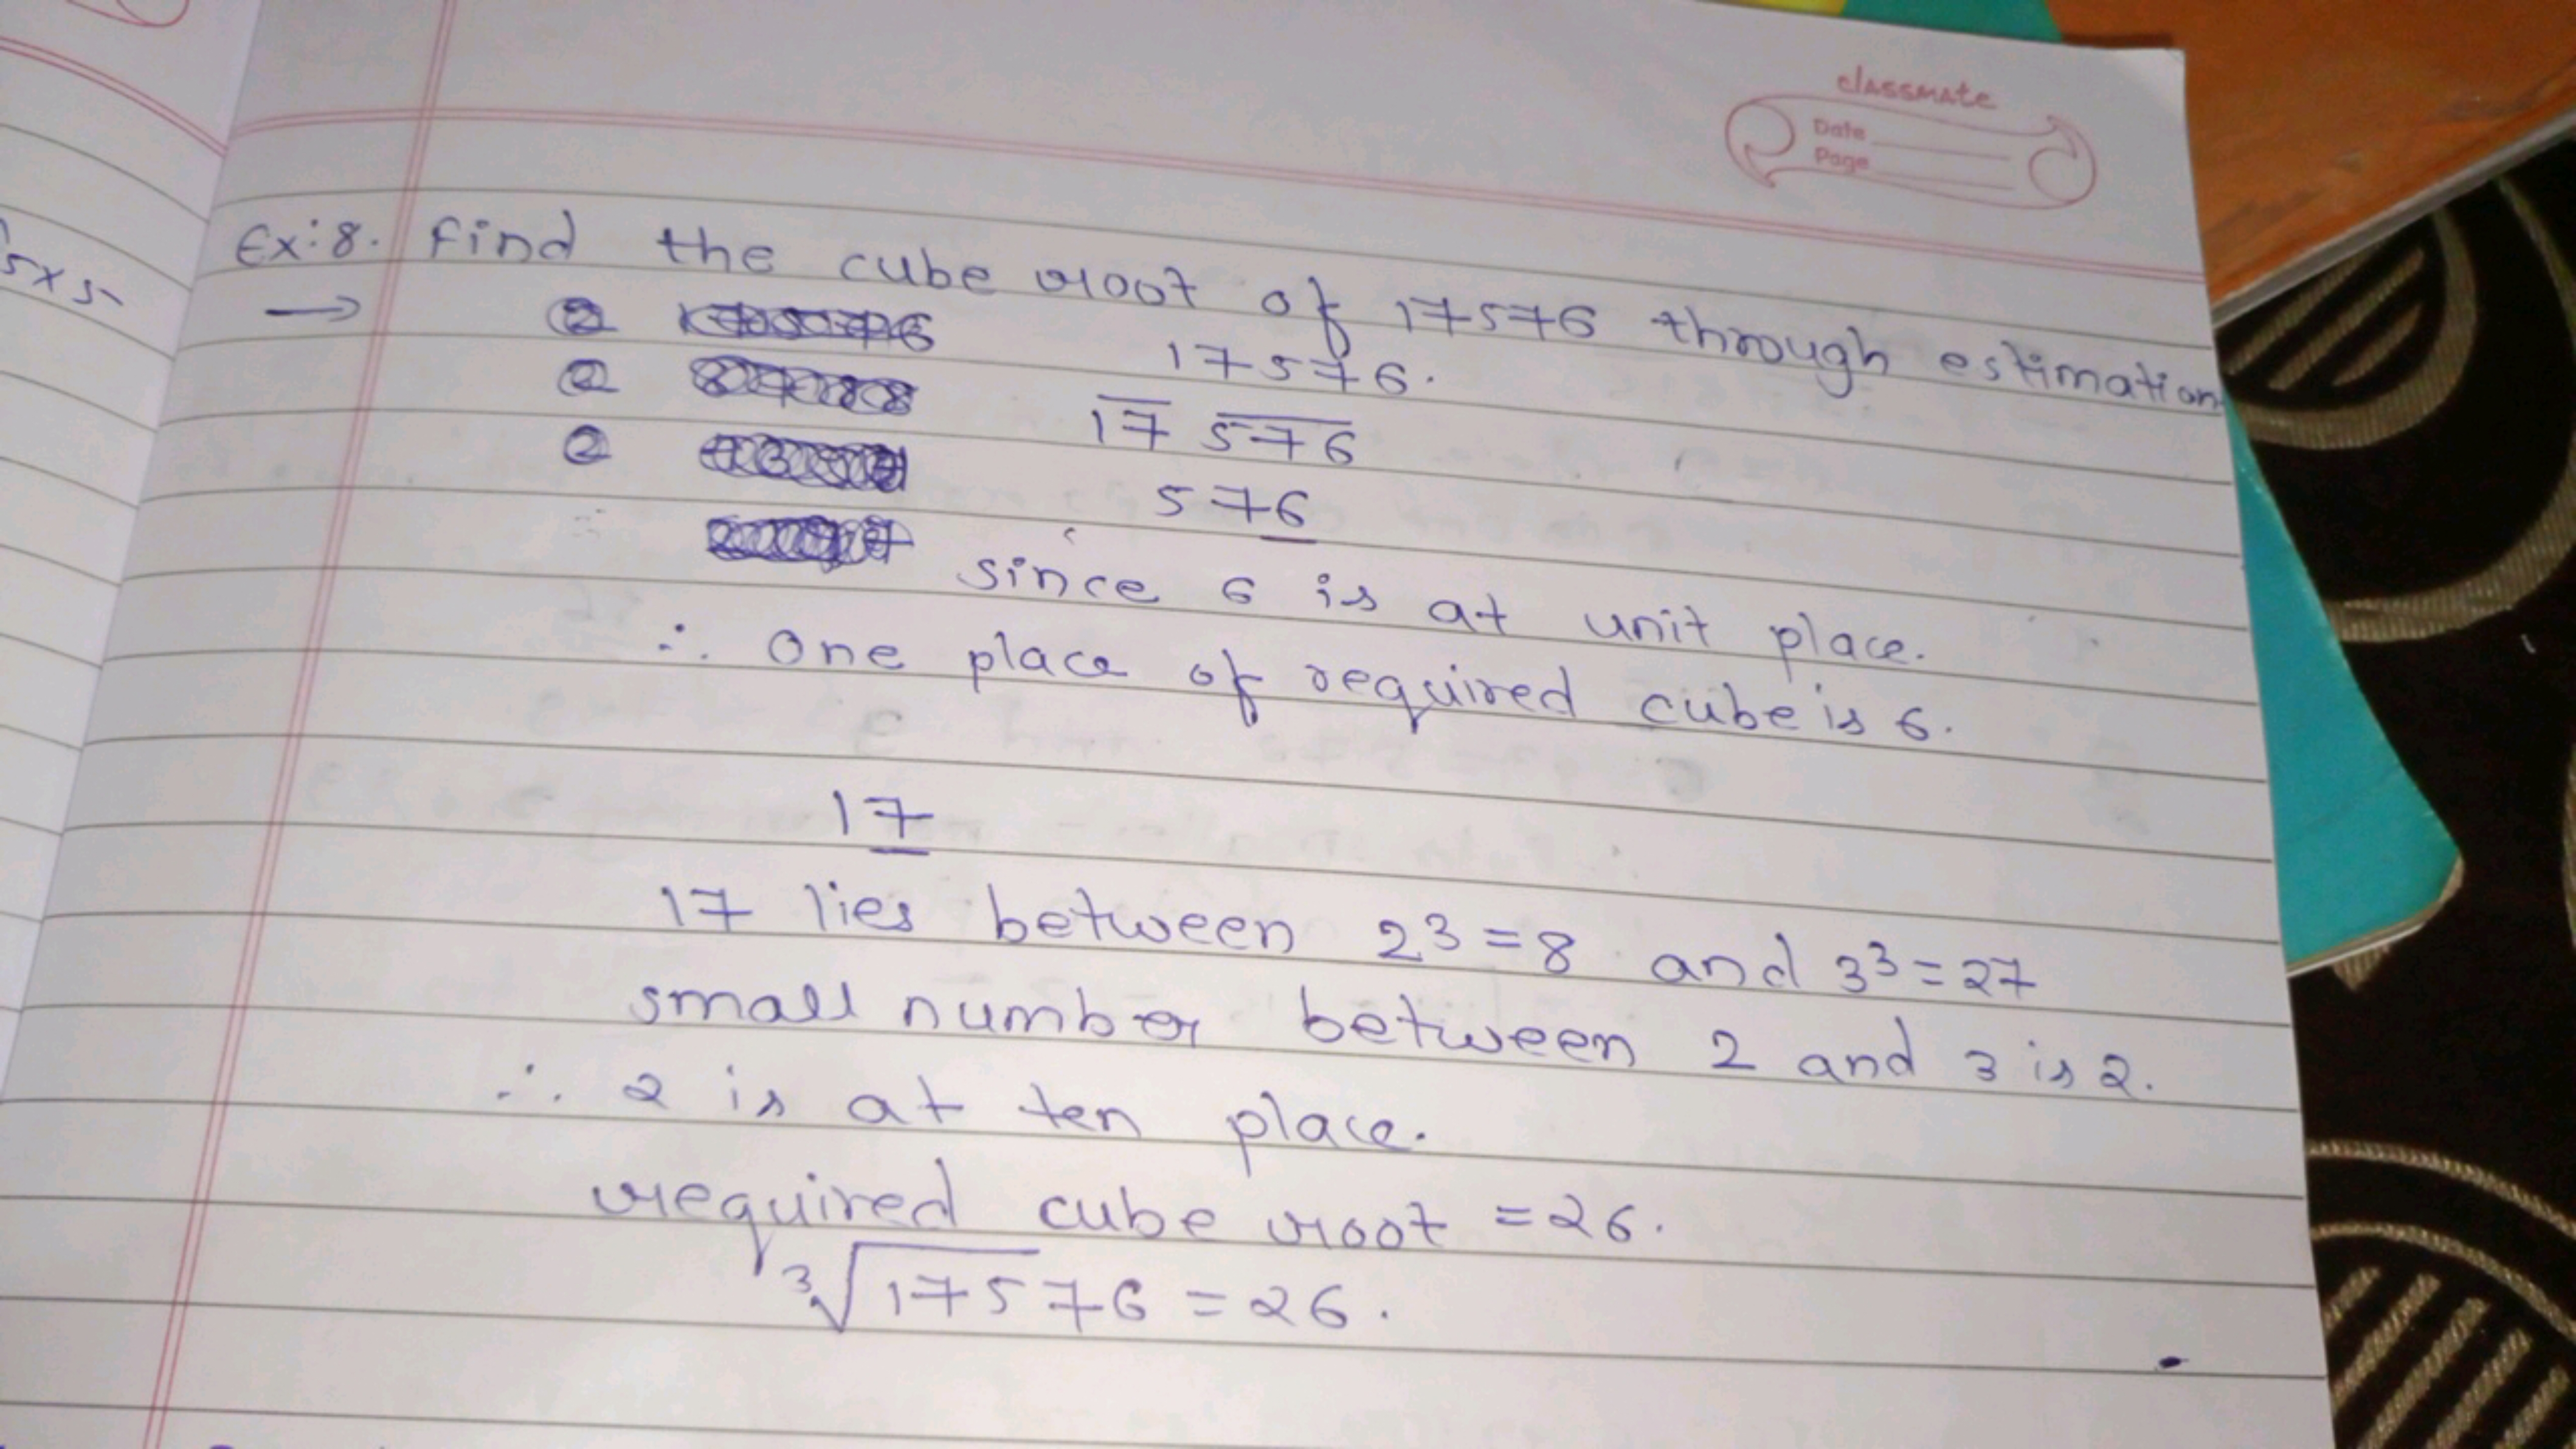 classmate
Date
Page
5×5
Ex:8. Find the cube root of 17576 through estimation
→ 17576.
17 576
576
since 6 is at unit place.
∴ One place of required cube is 6.
17
17 lies between 2³=8 and 3³=27
small number between 2 and 3 is 2.
∴ 2 is at ten place.
required cube root = 26.
∛17576 = 26.